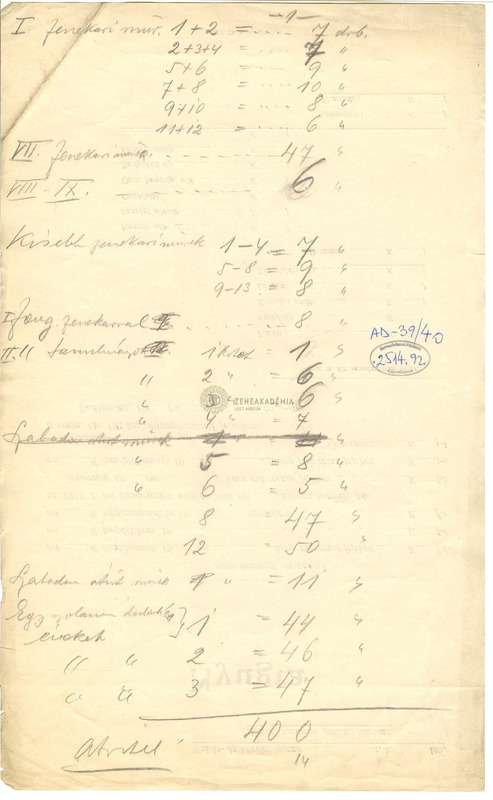 -1-
I Zenekari műv. 1+2 = .... 7 drb.
2+3+4 = .... 7 "
5+6 = .... 9 "
7+8 = .... 10 "
9+10 = .... 8 "
11+12 = .... 6 "
VII. Zenekari művek. - - - - - 47 "
VIII - IX. 6 "
Kisebb zenekari művek 1-4 = 7 "
5-8 = 9 "
9-13 = 8 "
zenekarral 8 "
AD-39/40
2514.92.
II. = 1 "
" 2 " = 6 "
ZENEAKADÉMIA
LISZT MÚZEUM
" = 6 "
" 4 " = 7 "
" 5 = 8 "
" 6 = 5 "
8 = 47 "
12 = 50 "
Szabadon átírt művek 1 " = 11 "
Egy
1 = 44 "
énekek
" " 2 = 46 "
" " 3 = 47 "
400
14